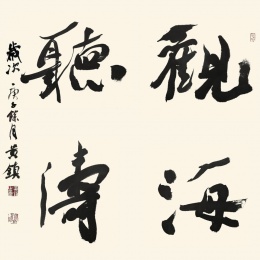 觀海
聽濤
歲次庚子餘月黃鎮